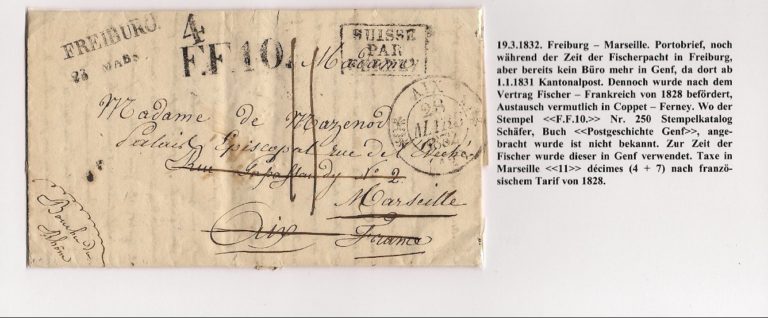 FREIBURG.
23 MARS
4
F.F.10.
SUISSE
PAR
Madame
AIX
28
MARS
1832
Madame de Mazenod
Palais Episcopal rue de l'Evêché
Rue Papassaudy N° 2
Marseille
Aix France
Bouche du
Rhône
19.3.1832. Freiburg – Marseille. Portobrief, noch
während der Zeit der Fischerpacht in Freiburg,
aber bereits kein Büro mehr in Genf, da dort ab
1.1.1831 Kantonalpost. Dennoch wurde nach dem
Vertrag Fischer – Frankreich von 1828 befördert,
Austausch vermutlich in Coppet – Ferney. Wo der
Stempel <<F.F.10.>> Nr. 250 Stempelkatalog
Schäfer, Buch <<Postgeschichte Genf>>, ange-
bracht wurde ist nicht bekannt. Zur Zeit der
Fischer wurde dieser in Genf verwendet. Taxe in
Marseille <<11>> décimes (4 + 7) nach franzö-
sischem Tarif von 1828.